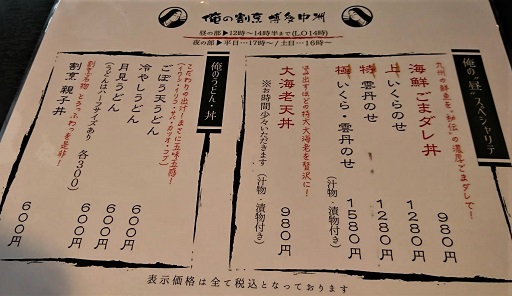 俺の割烹 博多中洲
昼の部▶12時～14時半まで(L.O14時)
夜の部▶平日…17時～/土日…16時～
俺の"昼"スペシャリテ
九州の鮮魚を、"秘伝"の濃厚ごまダレで!
海鮮ごまダレ丼 980円
上 いくらのせ 1280円
特 雲丹のせ 1280円
極 いくら・雲丹のせ 1580円
(汁物・漬物付き)
特大大海老を贅沢に!
大海老天丼 980円
※お時間少々いただきます(汁物・漬物付き)
俺のうどん・丼
こだわりの出汁!まさに五味五感!
(イワシ・イリコ・サバ・カツオ・コブ)
ごぼう天うどん 600円
冷やしうどん 600円
月見うどん 600円
(うどんはハーフサイズあり 各300)
割烹名物 とろっふわっを是非!
割烹 親子丼 600円
表示価格は全て税込となっております